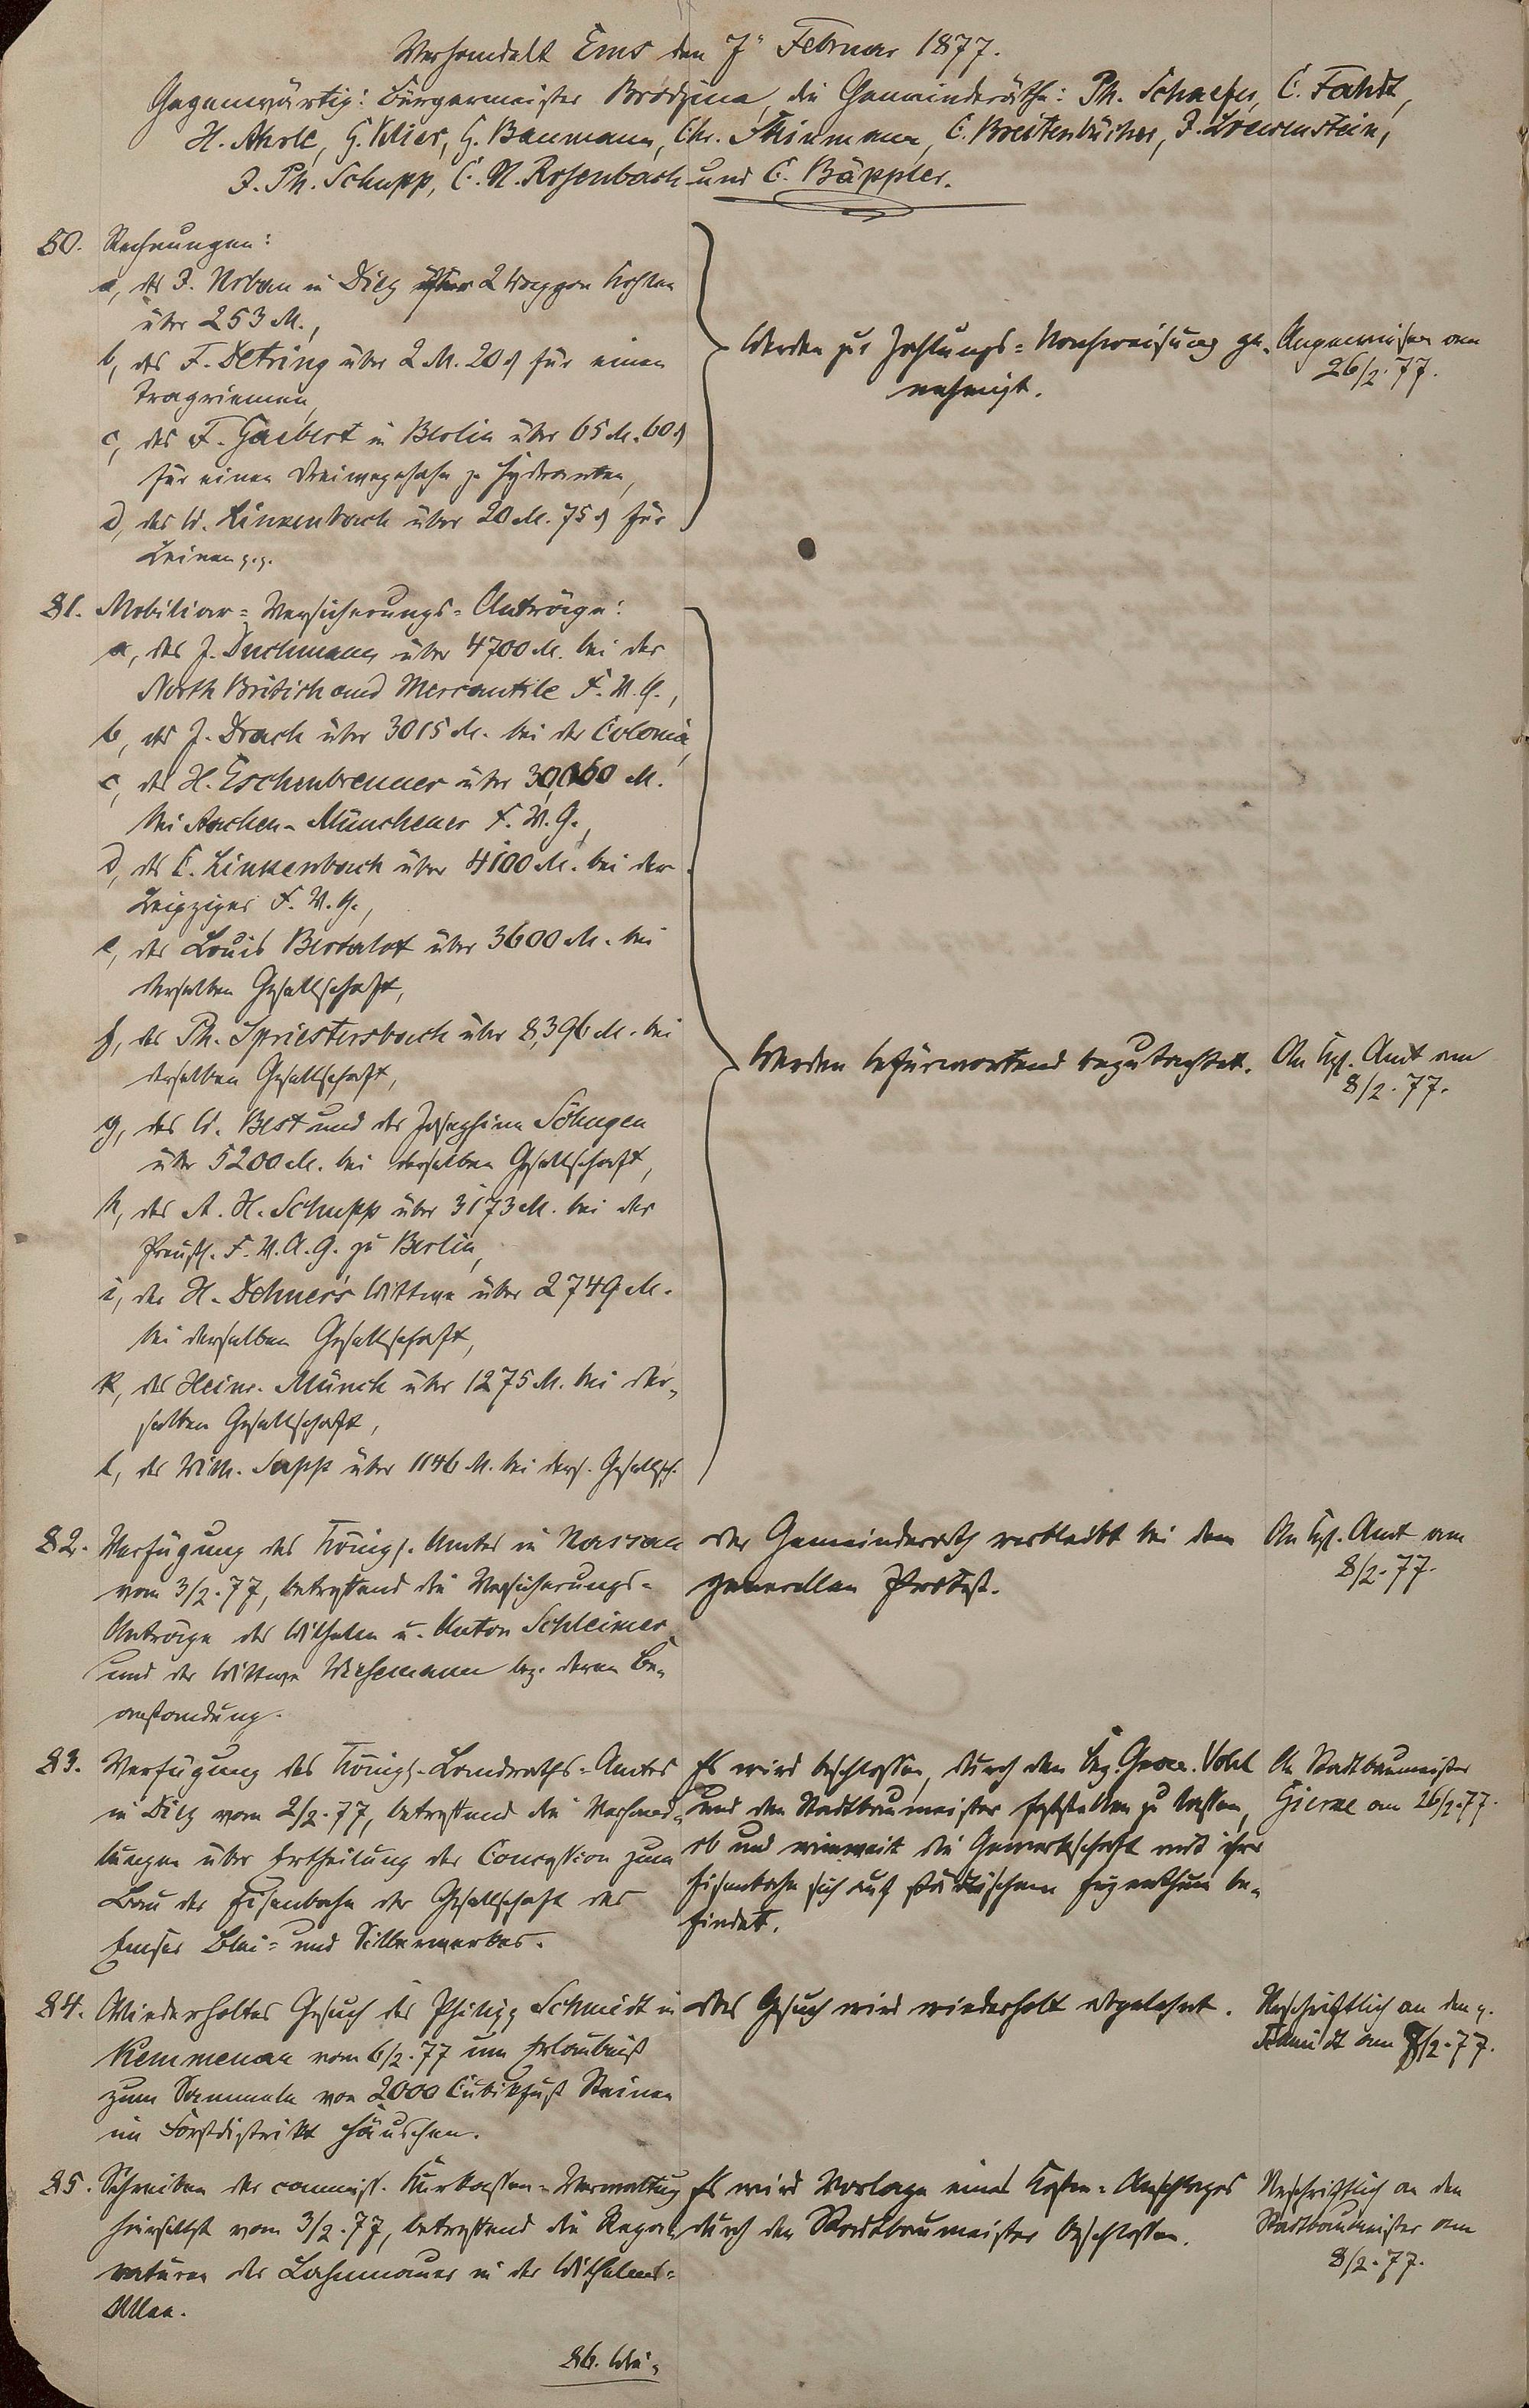 Verhandelt Ems den 7" Februar 1877.
Gegenwärtig: Bürgermeister Brodzina, die Gemeinderäthe: Ph. Schaefer, C. Fahdt,
H. Ahrle, G. Klier, G. Baumann, Chr. Thinmann, C. Breitenbücher, J. Loewenstein,
J. Ph. Schupp, C. N. Rosenbach und C. Bäppler.
80. Rechnungen:
a, des J. Urban in Diez über 2 Waggon Kohlen
über 253 M.,
b, des F. Detring über 2 M. 20 ₰ für einen
Tragriemen,
c, des F. Gaebert in Berlin über 65 M. 60 ₰
für einen Dreiwegehahn z. Hydranten,
d, des W. Linkenbach über 20 M. 75 ₰ für
Leinen p.p.
Werden zur Zahlungs=Nachweisung ge-
nehmigt.
Angewiesen am
26/2. 77.
81. Mobiliar=Versicherungs=Anträge:
a, des J. Duchmann über 4700 M. bei der
North British and Mercantile F. V. G.,
b, des J. Drach über 3015 M. bei der Colonia,
c, des H. Eschenbrenner über M.
bei Aachen-Münchener F. V. G.,
d, des C. Linkenbach über 4100 M. bei der
Leipziger F. V. G.,
e, des Louis Bertalot über 3600 M. bei
derselben Gesellschaft,
f, des Ph. Spriestersbach über 8,396 M. bei
derselben Gesellschaft,
g, des W. Best und der Josephine Söhngen
über 5200 M. bei derselben Gesellschaft,
h, des A. H. Schupp über 3173 M. bei der
Preuß. F. V. A. G. zu Berlin,
i, der H. Dehner's Wittwe über 2749 M.
bei derselben Gesellschaft,
k, des Heinr. Münch über 1275 M. bei der-
selben Gesellschaft,
l, des Wilh. Sapp über 1146 M. bei ders. Gesellsch.
Werden befürwortend begutachtet.
An Kgl. Amt am
8/2. 77.
82. Verfügung des Königl. Amtes in Nassau
vom 3/2. 77, betreffend die Versicherungs-
Anträge des Wilhelm u. Anton Schleimer
und der Wittwe Wiesemann bez. deren Be-
anstandung.
Der Gemeinderath verbleibt bei dem
generellen Protest.
An Kgl. Amt am
8/2. 77.
83. Verfügung des Königl. Landraths-Amtes
in Diez vom 2/2. 77, betreffend die Verhand-
lungen über Ertheilung der Concession zum
Bau der Eisenbahn der Gesellschaft des
Emser Blei= und Silberwerkes.
Es wird beschlossen, durch den Bez. Geom. Vohl
und den Stadtbaumeister feststellen zu lassen,
ob und wieweit die Gewerkschaft mit ihrer
Eisenbahn sich auf städtischem Eigenthum be-
findet.
An Stadtbaumeister
Gierke am 26/2. 77.
84. Wiederholtes Gesuch des Philipp Schmidt in
Kemmenau vom 6/2. 77 um Erlaubniß
zum Sammeln von 2000 Cubikfuß Steinen
im Forstdistrikt Häuschen.
Das Gesuch wird wiederholt abgelehnt.
Abschriftlich an den p.
Schmidt am 8/2. 77.
85. Schreiben der commiss. Kurkassen=Verwaltung
hierselbst vom 3/2. 77, betreffend die Repa-
raturen der Lahnmauer in der Wilhelms=
Allee.
Es wird Vorlage eines Kosten=Anschlages
durch den Stadtbaumeister beschlossen.
Abschriftlich an den
Stadtbaumeister am
8/2. 77.
86. Wei-